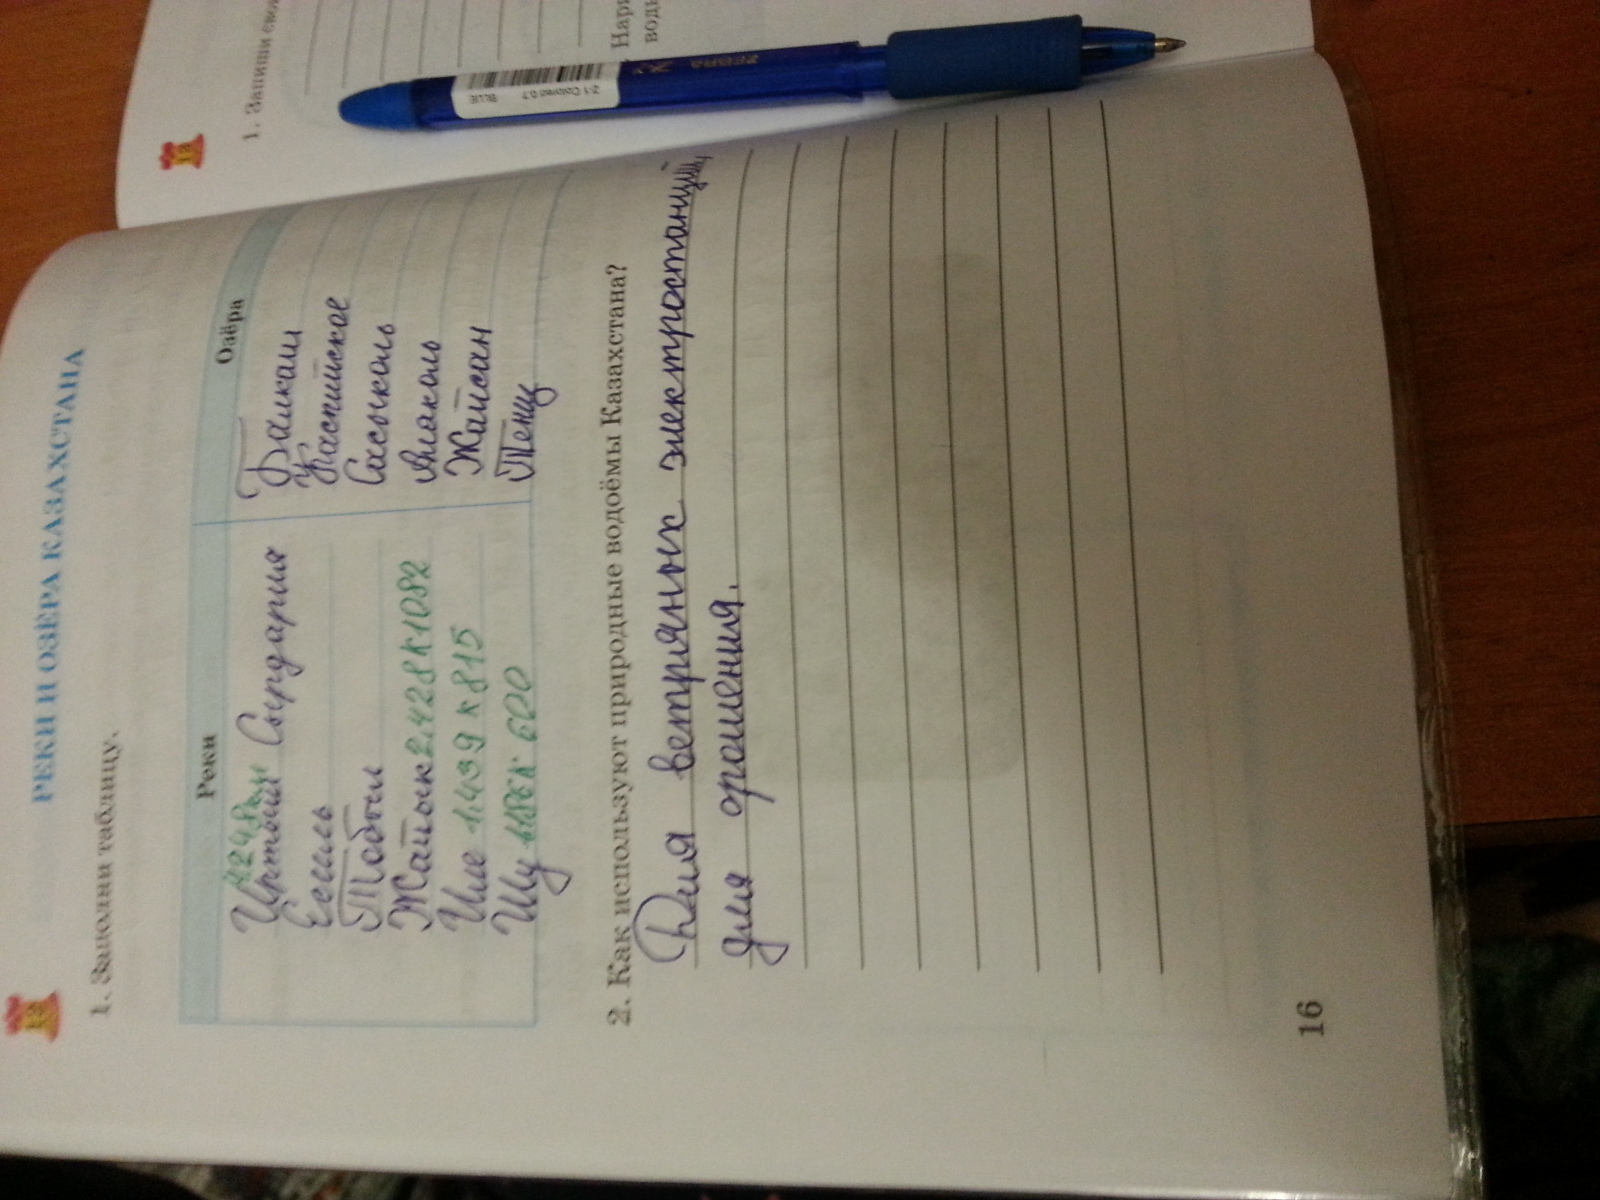 12
РЕКИ И ОЗЁРА КАЗАХСТАНА
1. Заполни таблицу.
Реки Озёра
4248км
Иртыш Сырдария Балкаш
Есиль Каспийское
Тобыл Сасыколь
Жайык 2.428 К 1082 Алаколь
Иле 1.439 к 815 Жайсан
Шу 1186 к 600 Тениз
2. Как используют природные водоёмы Казахстана?
Для ветряных электростанций,
для орошения.
16
13
1. Запиши
Нари
вод
ZEBRA
Z-1 Colored 0.7
BLUE